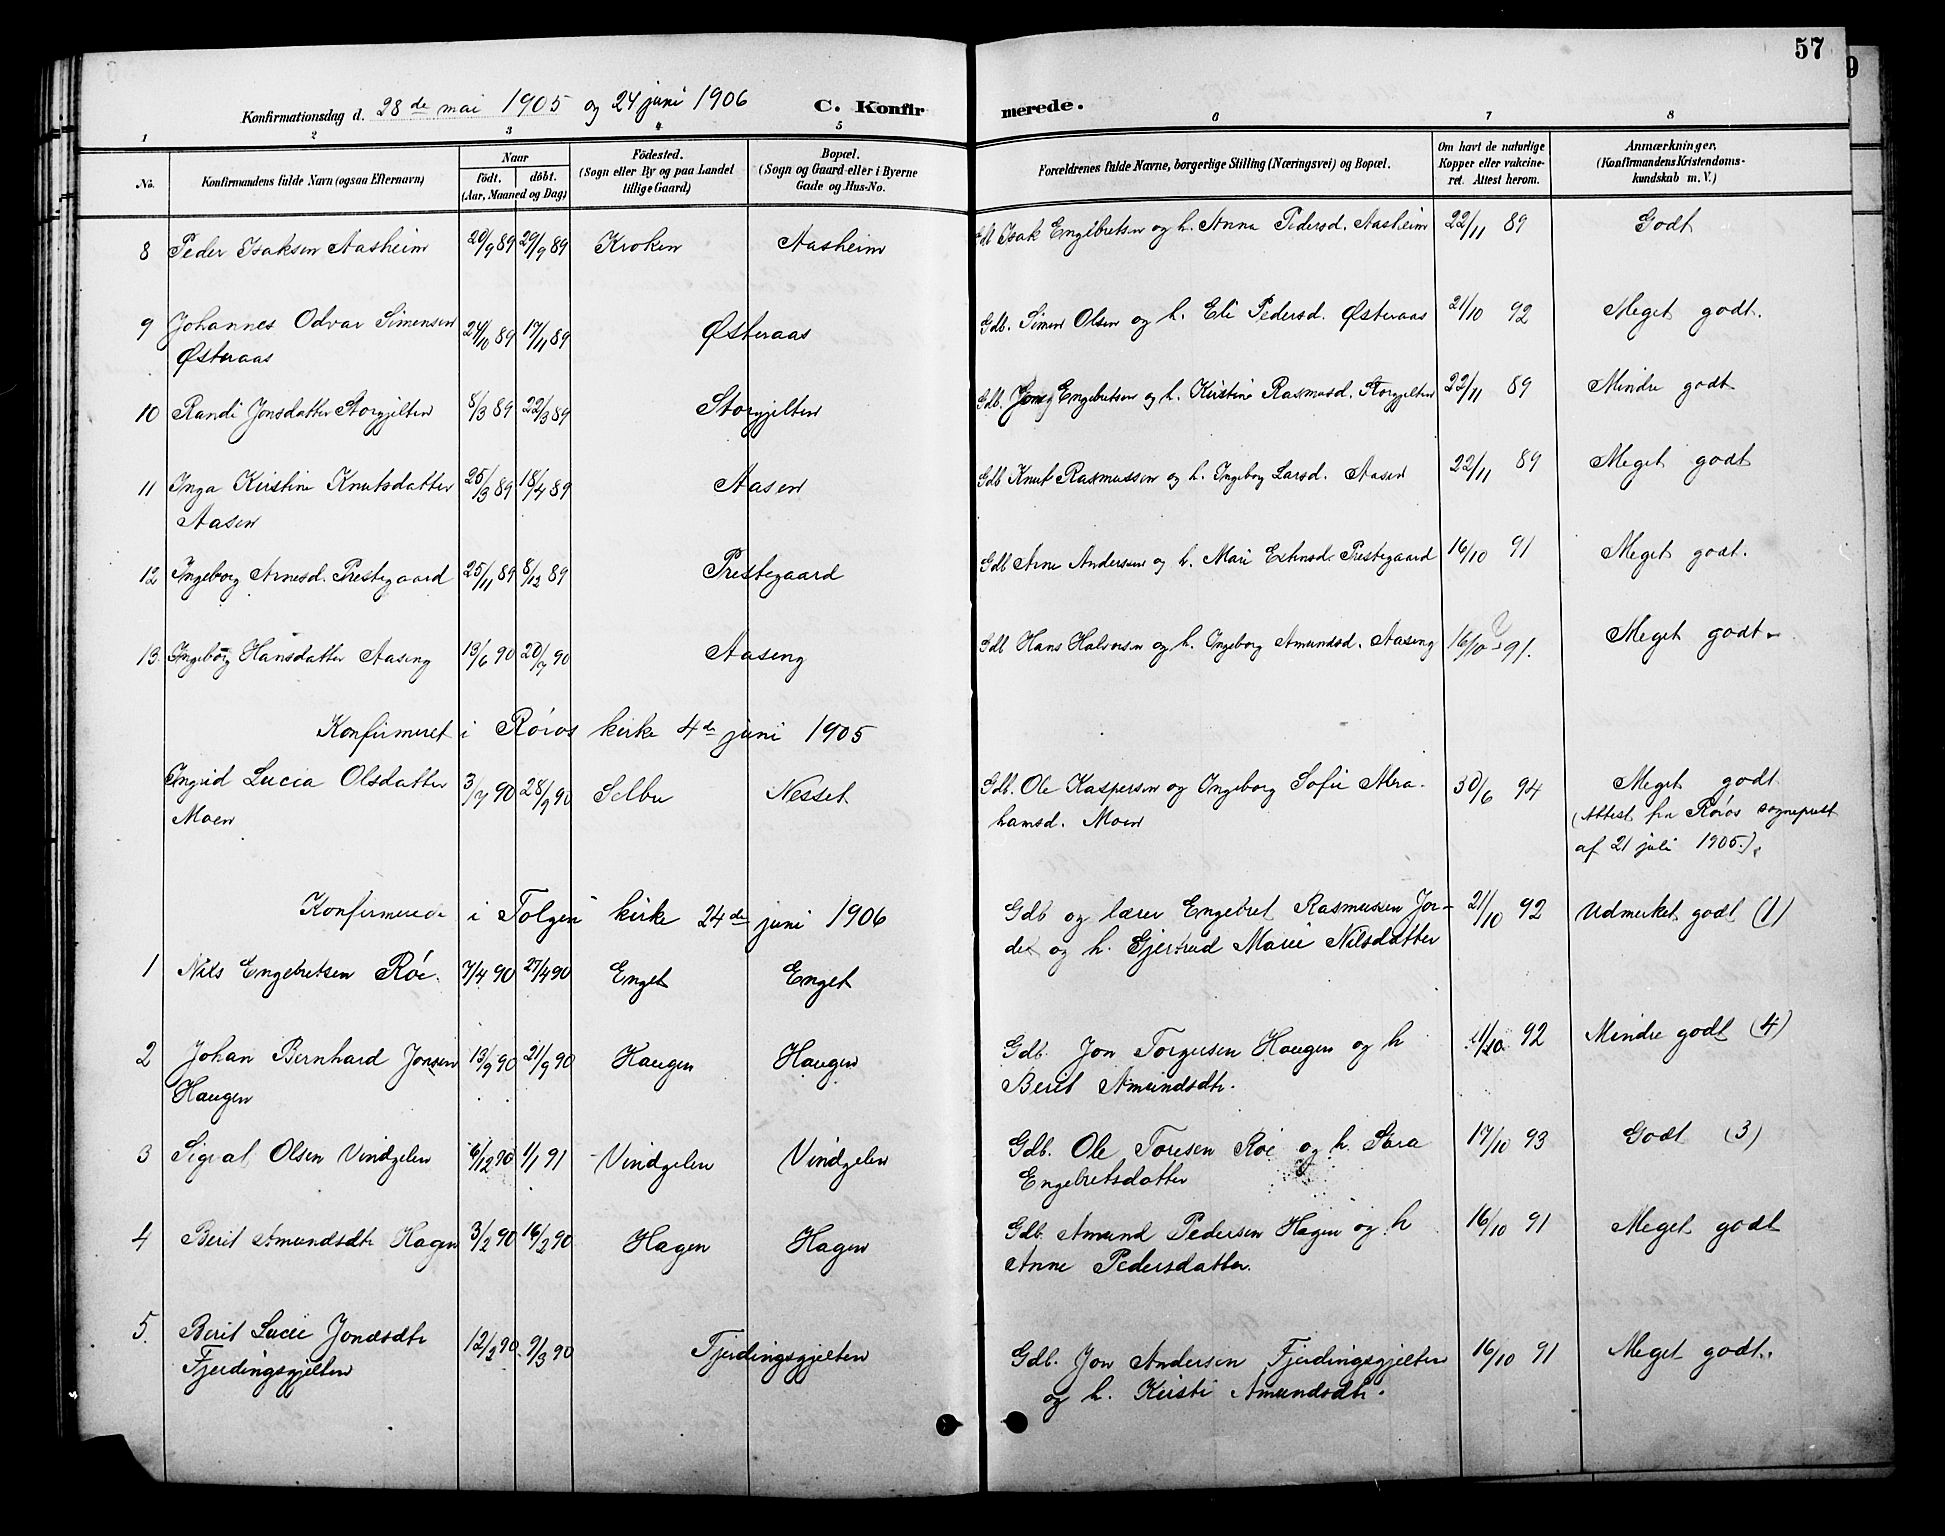 57
9
Konfirmationsdag d. 28de mai 1905 og 24 juni 1906 C. Konfirmerede.
1 2 3 4 5 6 7 8
No.
Konfirmandens fulde Navn (ogsaa Efternavn)
Naar
födt. döbt.
(Aar, Maaned og Dag)
Födested.
(Sogn eller By og paa Landet
tillige Gaard)
Bopæl.
(Sogn og Gaard eller i Byerne
Gade og Hus-No.
Forældrenes fulde Navne, borgerlige Stilling (Næringsvei) og Bopæl.
Om havt de naturlige
Kopper eller vakcine-
ret. Attest herom.
Anmærkninger,
(Konfirmandens Kristendoms-
kundskab m. V.)
8 Peder Isaksen Aasheim 20/9 89 29/9 89 Kroken Aasheim Gdb Isak Engebretsen og h. Anna Pedersd. Aasheim 22/11 89 Godt
9 Johannes Odvar Simensen 24/10 89 17/11 89 Østeraas Gdb. Simen Olsen og h. Eli Pedersd. Østeraas 21/10 92 Meget godt.
Østeraas
10 Randi Jonsdatter Storgjelten 8/3 89 22/3 89 Storgjelten Gdb. Jon Engebretsen og h. Kirstine Rasmusd. Storgjelten 22/11 89 Mindre godt
11 Inga Kirstine Knutsdatter 25/3 89 18/4 89 Aasen Gdb Knut Rasmussen og h. Ingeborg Larsd. Aasen 22/11 89 Meget godt
Aasen
12 Ingeborg Arnesd. Prestegaard 25/11 89 8/12 89 Prestegaard Gdb Arne Andersen og h. Mari Estensd. Prestegaard 16/10 91 Meget godt.
13. Ingeborg Hansdatter Aaseng 13/6 90 20/7 90 Aaseng Gdb Hans Halvorsen og h. Ingeborg Amundsd. Aaseng 16/10 91. Meget godt
Konfirmeret i Røros kirke 4de juni 1905
Ingrid Lucia Olsdatter 3/7 90 28/9 90 Selbu Nesset Gdb. Ole Kaspersen og Ingeborg Sofie Abra- 30/6 94 Meget godt
Moen hamsd. Moen (Attest fra Røros sogneprest
af 21 juli 1905.).
Konfirmerede i Tolgen kirke 24de juni 1906 Gdb og lærer Engebret Rasmussen Jor- 21/10 92 Udmerket godt (1)
det og h. Gjertrud Marie Nilsdatter
1 Nils Engebretsen Röe. 7/4 90 27/4 90 Enget Enget
2 Johan Bernhard Jonsen 13/9 90 21/9 90 Haugen Haugen Gdb. Jon Torgersen Haugen og h 21/10 92 Mindre godt (4)
Haugen Berit Amundsdtr.
3 Sigvat Olsen Vindgelen 6/12 90 1/1 91 Vindgelen Vindgelen Gdb. Ole Toresen Röe og h. Sara 17/10 93 Godt (3)
Engebretsdatter
4 Berit Amundsdtr Hagen 3/2 90 16/2 90 Hagen Hagen Gdb. Amund Pedersen Hagen og h 16/10 91 Meget godt
Anne Pedersdatter.
5. Berit Lucie Jonesdtr 12/2 90 9/3 90 Fjerdingsgjelten Gdb. Jon Andersen Fjerdingsgjelten 16/10 91 Meget godt.
Fjerdingsgjelten og h. Kirsti Amundsdtr.